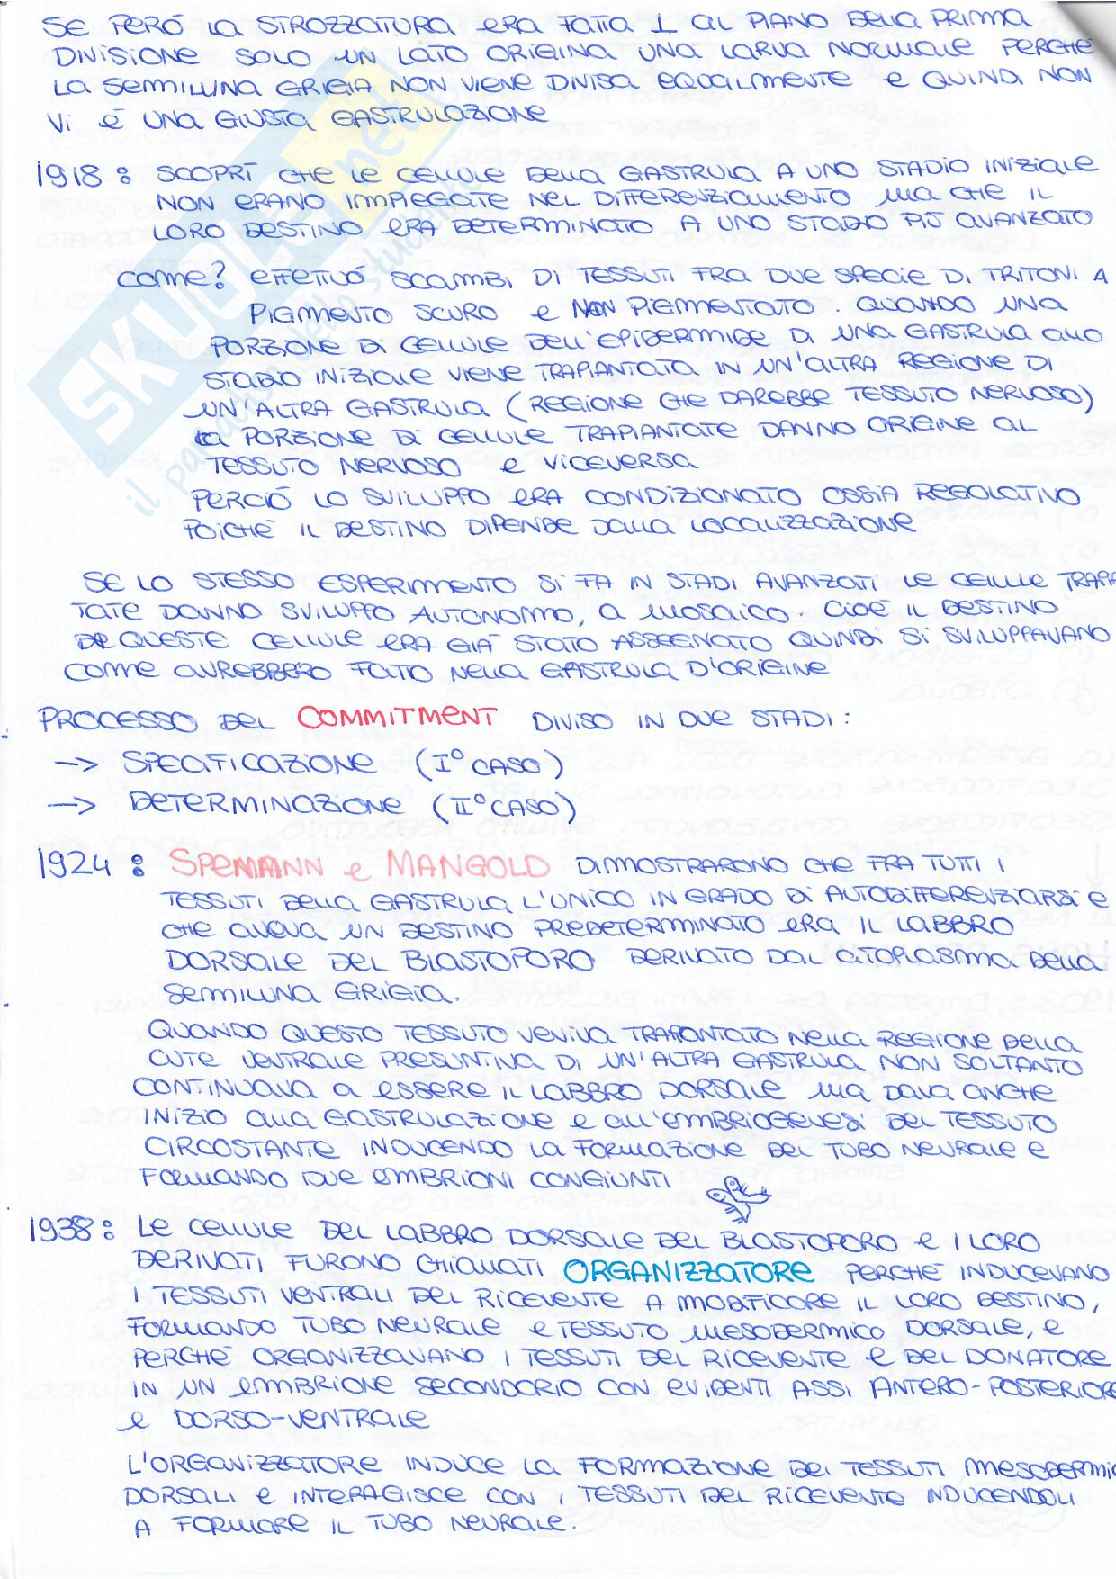 SE PERÓ LA STROZZATURA ERA FATTA ⊥ AL PIANO DELLA PRIMA
DIVISIONE SOLO UN LATO ORIGINA UNA LARVA NORMALE PERCHÉ
LA SEMILUNA GRIGIA NON VIENE DIVISA EQUALMENTE E QUINDI NON
VI É UNA GIUSTA GASTRULAZIONE
1918: SCOPRÍ CHE LE CELLULE DELLA GASTRULA A UNO STADIO INIZIALE
NON ERANO IMPIEGATE NEL DIFFERENZIAMENTO MA CHE IL
LORO DESTINO ERA DETERMINATO A UNO STADIO PIÙ AVANZATO
COME? EFFETTUÓ SCAMBI DI TESSUTI FRA DUE SPECIE DI TRITONI A
PIGMENTO SCURO E NON PIGMENTATO. QUANDO UNA
PORZIONE DI CELLULE DELL'EPIDERMIDE DI UNA GASTRULA ALLO
STADIO INIZIALE VIENE TRAPIANTATA IN UN'ALTRA REGIONE DI
UN'ALTRA GASTRULA (REGIONE CHE DAREBBE TESSUTO NERVOSO)
LA PORZIONE DI CELLULE TRAPIANTATE DANNO ORIGINE AL
TESSUTO NERVOSO E VICEVERSA
PERCIÓ LO SVILUPPO ERA CONDIZIONATO OSSIA REGOLATIVO
POICHÉ IL DESTINO DIPENDE DALLA LOCALIZZAZIONE
SE LO STESSO ESPERIMENTO SI FA IN STADI AVANZATI LE CELLULE TRAPI
TATE DANNO SVILUPPO AUTONOMO, A MOSAICO. CIOÉ IL DESTINO
DI QUESTE CELLULE ERA GIÁ STATO ASSEGNATO QUINDI SI SVILUPPAVANO
COME AVREBBERO FATTO NELLA GASTRULA D'ORIGINE
PROCESSO DEL COMMITMENT DIVISO IN DUE STADI:
-> SPECIFICAZIONE (I° CASO)
-> DETERMINAZIONE (II° CASO)
1924: SPEMANN E MANGOLD DIMOSTRARONO CHE FRA TUTTI I
TESSUTI DELLA GASTRULA L'UNICO IN GRADO DI AUTODIFFERENZIARSI E
CHE AVEVA UN DESTINO PREDETERMINATO ERA IL LABBRO
DORSALE DEL BLASTOPORO DERIVATO DAL CITOPLASMA DELLA
SEMILUNA GRIGIA.
QUANDO QUESTO TESSUTO VENIVA TRAPIANTATO NELLA REGIONE DELLA
CUTE VENTRALE PRESUNTIVA DI UN'ALTRA GASTRULA NON SOLTANTO
CONTINUAVA A ESSERE IL LABBRO DORSALE MA DAVA ANCHE
INIZIO ALLA GASTRULAZIONE E ALL'EMBRIOGENESI DEL TESSUTO
CIRCOSTANTE INDUCENDO LA FORMAZIONE DEL TUBO NEURALE E
FORMANDO DUE EMBRIONI CONGIUNTI
1938: LE CELLULE DEL LABBRO DORSALE DEL BLASTOPORO E I LORO
DERIVATI FURONO CHIAMATI ORGANIZZATORE PERCHÉ INDUCEVANO
I TESSUTI VENTRALI DEL RICEVENTE A MODIFICARE IL LORO DESTINO,
FORMANDO TUBO NEURALE E TESSUTO MESODERMICO DORSALE, E
PERCHÉ ORGANIZZAVANO I TESSUTI DEL RICEVENTE E DEL DONATORE
IN UN EMBRIONE SECONDARIO CON EVIDENTI ASSI ANTERO-POSTERIORE
E DORSO-VENTRALE
L'ORGANIZZATORE INDUCE LA FORMAZIONE DEI TESSUTI MESODERMIC
DORSALI E INTERAGISCE CON I TESSUTI DEL RICEVENTE INDUCENDOLI
A FORMARE IL TUBO NEURALE.
SKUOLA.net